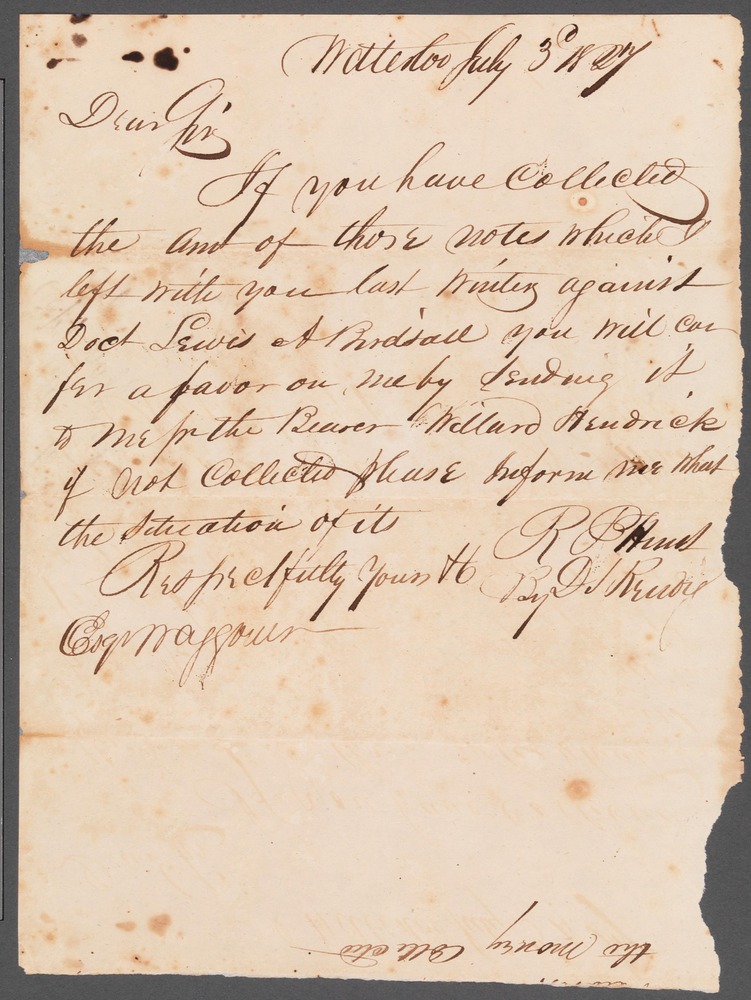 Watterloo July 3d 1827
Dear Sir
If you have Collected
the amt of those notes which I
left with you last Winter against
Doct Lewis A Birdsall you will con
fer a favor on me by sending it
to me pr the Bearer Willard Hendrick
if not Collected please inform me what
the Situation of it is
R P Hunt
Respectfully Yours &c
By D S
Esqr Waggoner
the money Collected